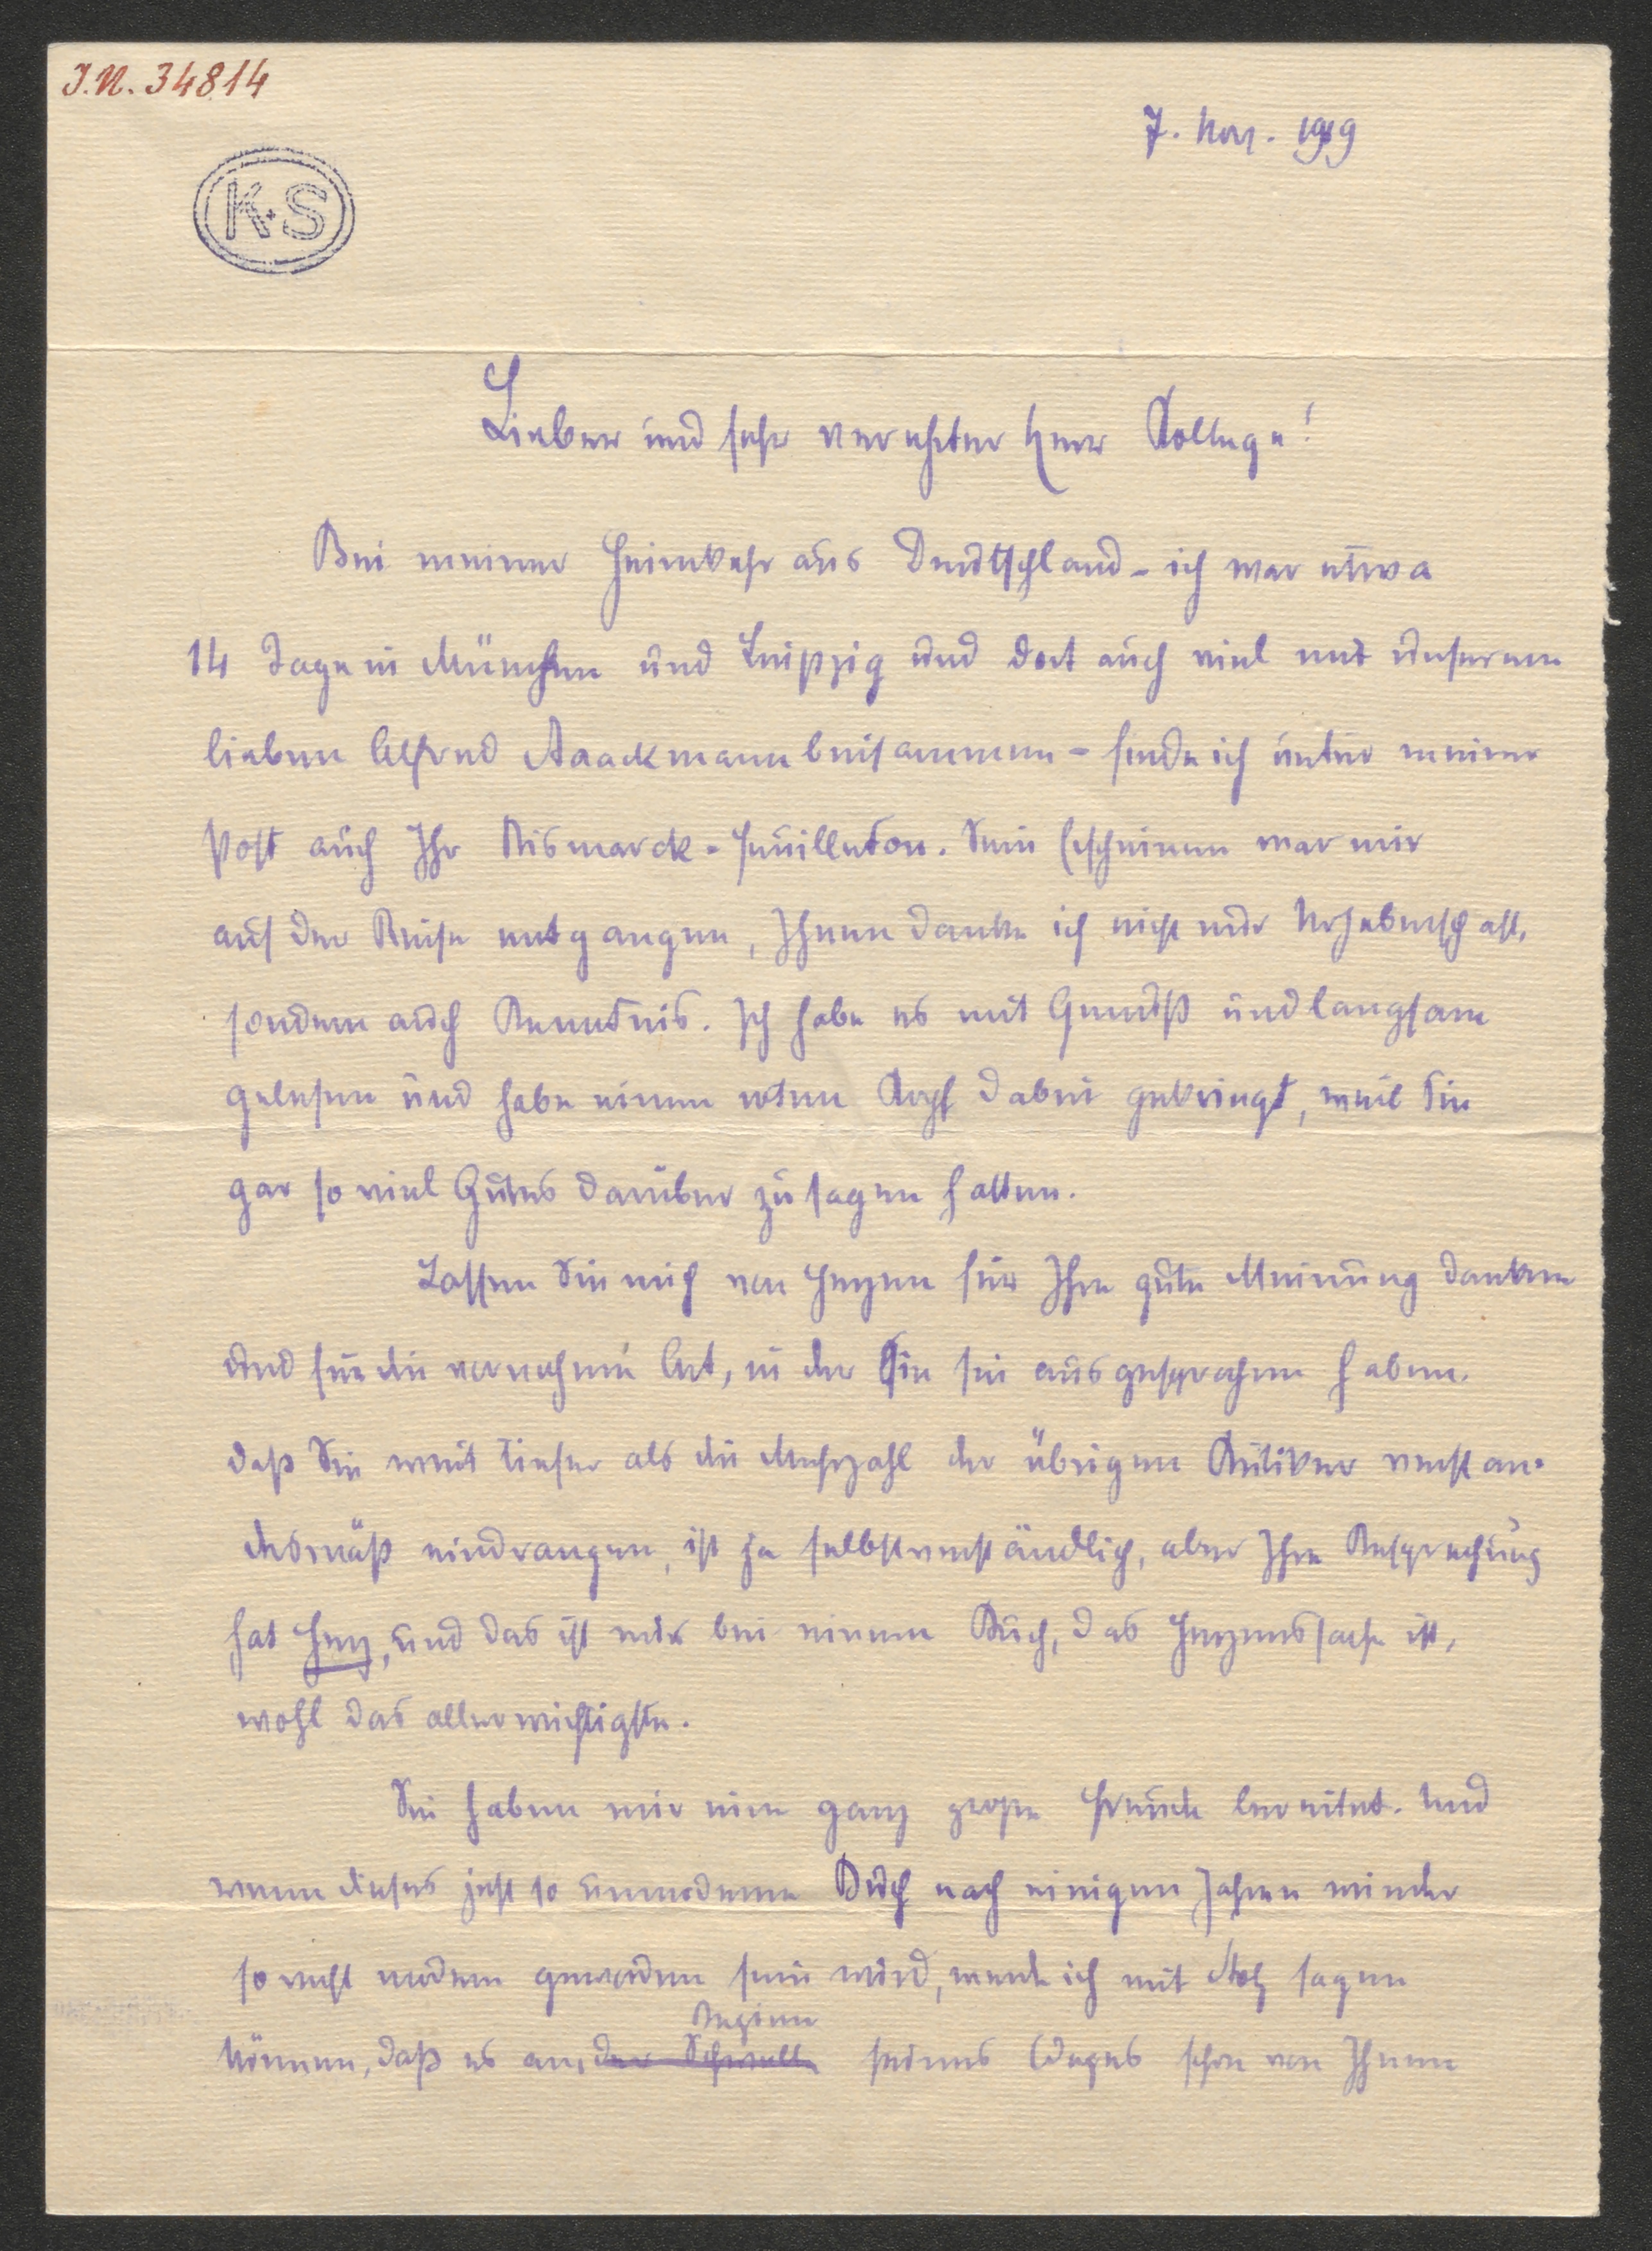 I.N. 34814
7. Nov. 1919
K.S
Lieber und sehr verehrter Herr Kollege!
Bei meiner Heimkehr aus Deutschland - ich war etwa
14 Tage in München und Leipzig und dort auch viel mit unserem
lieben Alfred Staackmann beisammen - finde ich unter meiner
Post auch Ihr Bismarck-Feuilleton. Sein Erscheinen war mir
auf der Reise entgangen, Ihnen danke ich nicht nur Urheberschaft,
sondern auch Kenntnis. Ich habe es mit Genuß und langsam
gelesen und habe einen roten Kopf dabei gekriegt, weil Sie
gar so viel Gutes darüber zu sagen hatten.
Lassen Sie mich von Herzen für Ihre gute Meinung danken
und für die vornehme Art, in der Sie sie ausgesprochen haben.
daß Sie weit tiefer als die Mehrzahl der übrigen Kritiker verstan-
desmäß eindrangen, ist ja selbstverständlich, aber Ihre Besprechung
hat Herz, und das ist mir bei einem Buch, das Herzenssache ist,
wohl das allerwichtigste.
Sie haben mir eine ganz große Freude bereitet. Und
wenn dieses jetzt so unmoderne Buch nach einigen Jahren wieder
so recht modern geworden sein wird, werde ich mit Stolz sagen
Beginn
können, daß es an der Schwelle seines Weges schon von Ihnen